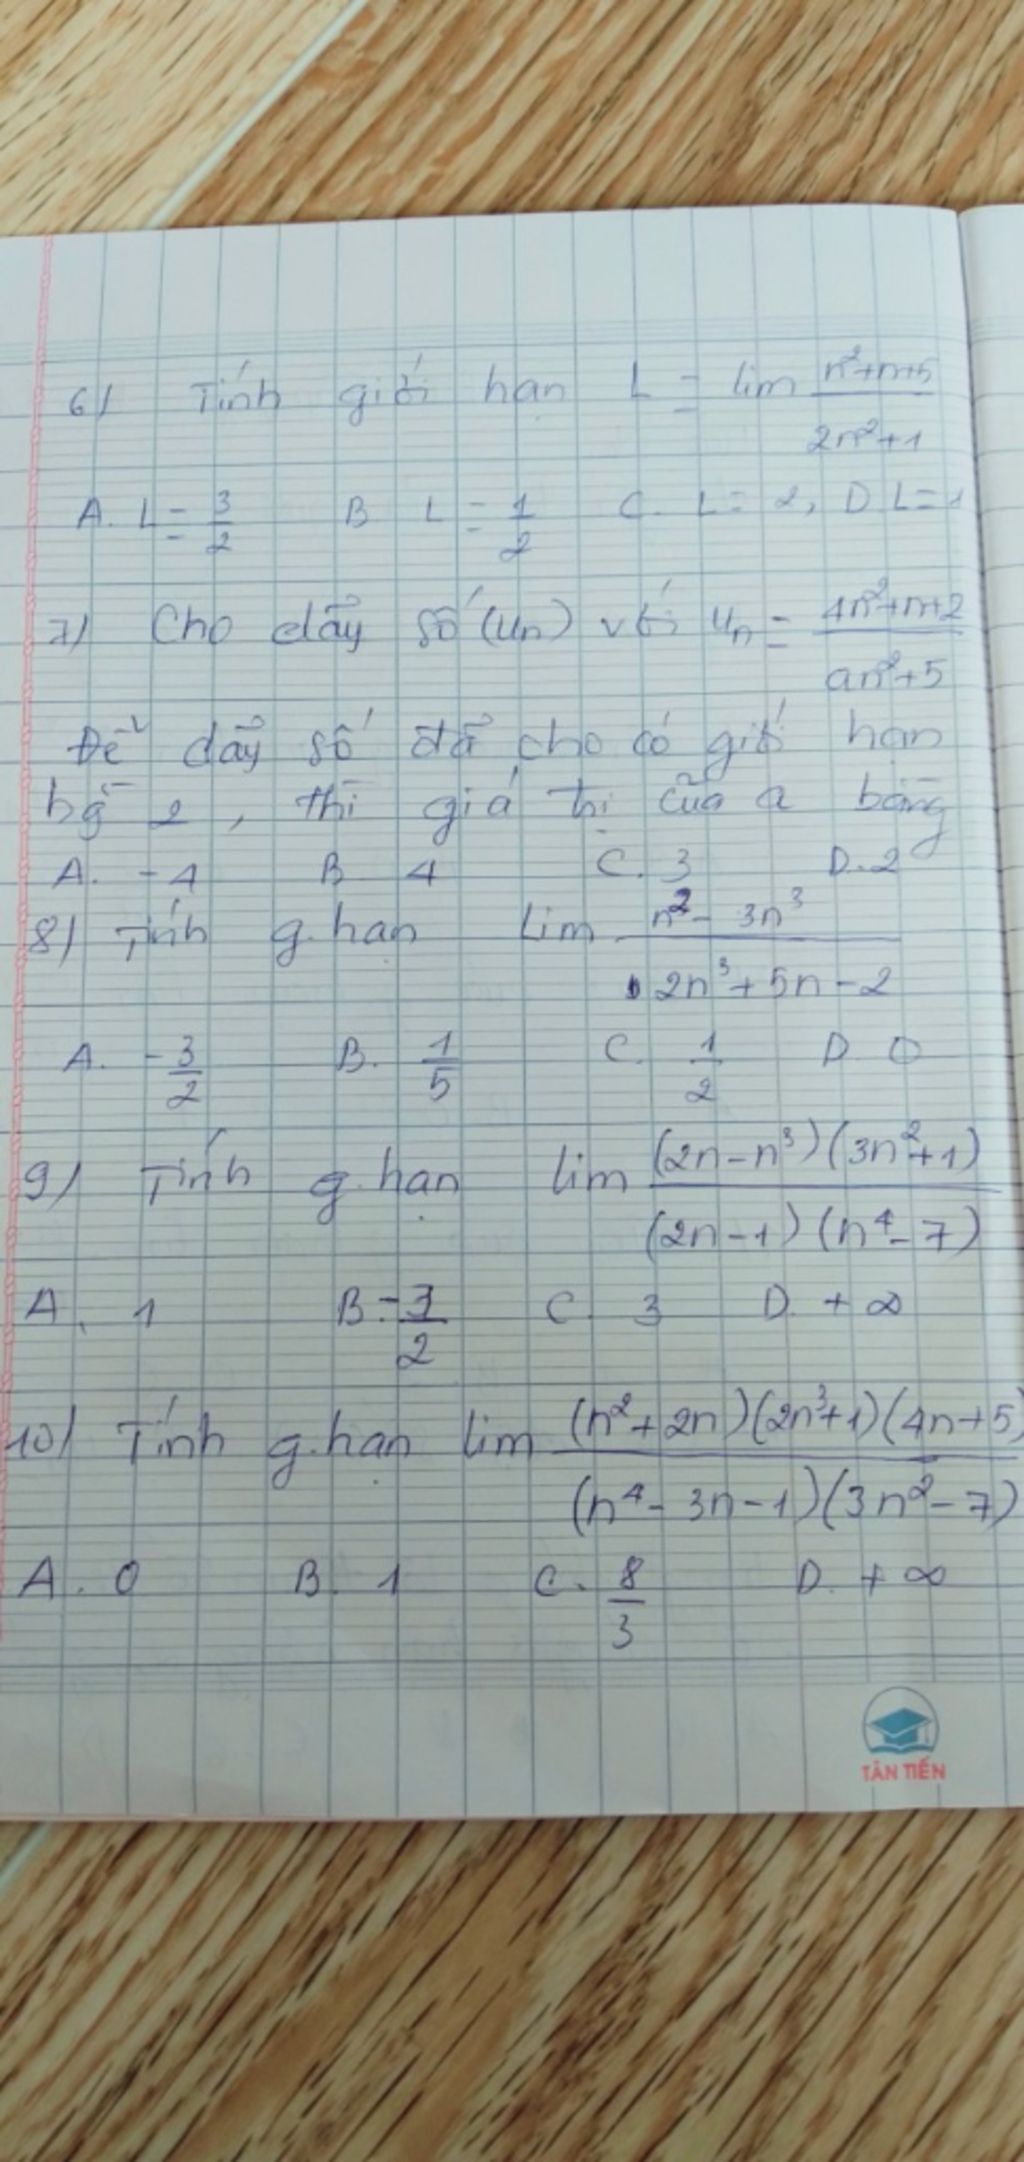 6) Tính giới hạn L = lim (n²+n+5)/(2n²+1)
A. L = 3/2 B L = 1/2 C. L = 2, D. L = 1
7) Cho dãy số (un) với un = (4n²+n+2)/(an²+5)
Để dãy số đã cho có giớ hạn
bg 2, thì giá trị của a bằng
A. -4 B. 4 C. 3 D. 2
8) Tính g.hạn lim (n² - 3n³)/(2n³ + 5n - 2)
A. -3/2 B. 1/5 C. 1/2 D. 0
9) Tính g.hạn lim (2n-n³)(3n²+1)/(2n-1)(n⁴-7)
A. 1 B. -3/2 C. 3 D. +∞
10) Tính g.hạn lim (n²+2n)(2n³+1)(4n+5)/(n⁴-3n-1)(3n²-7)
A. 0 B. 1 C. 8/3 D. +∞
TÂN TIẾN